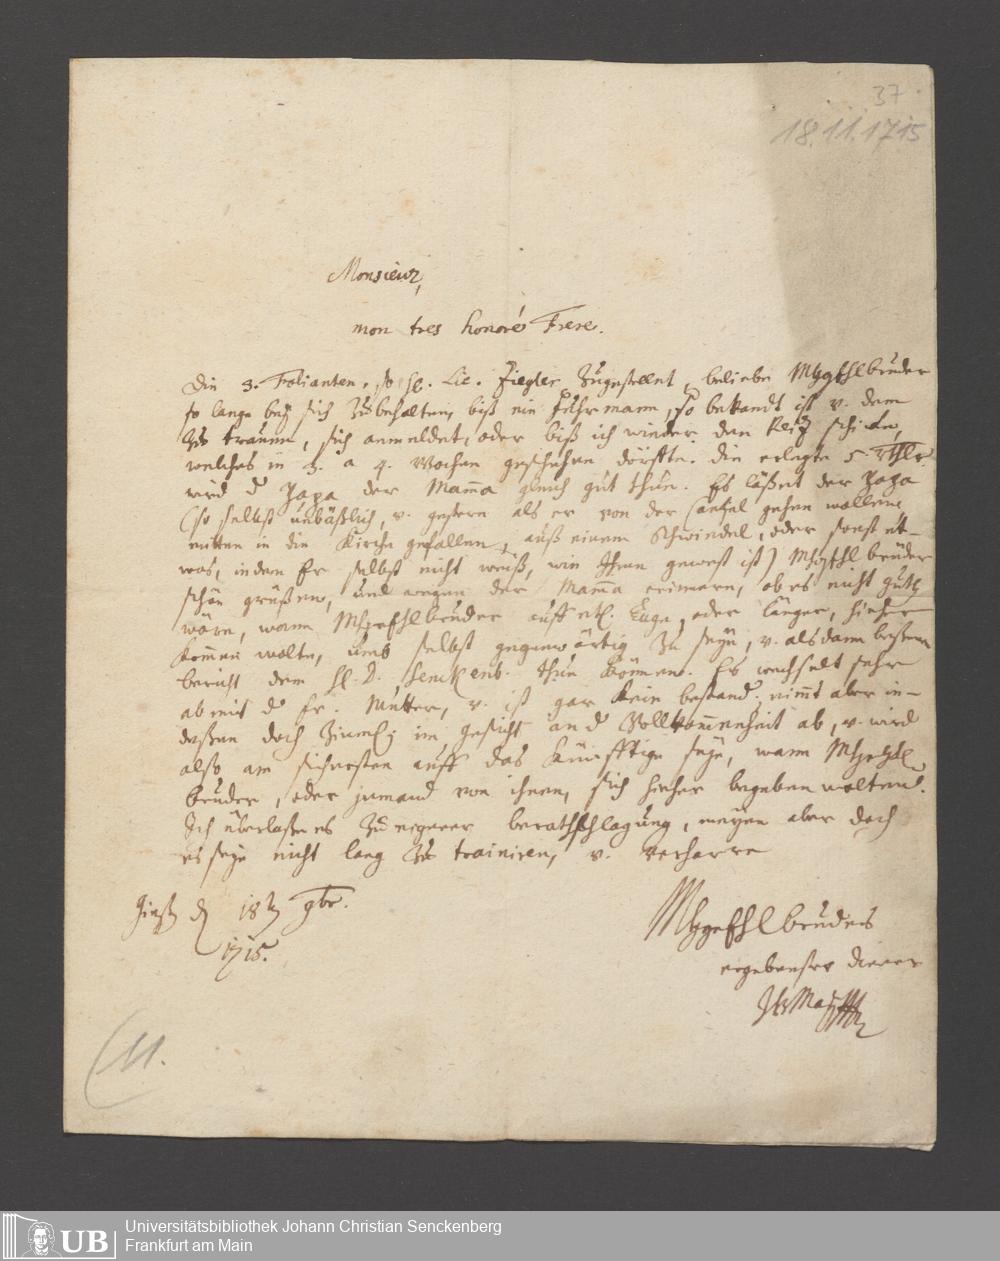 37
18.11.1715
Monsieur,
mon tres honoré Frere.
Die 3. Folianten, so H. Lic. Ziegler zugestellet, beliebe MhgEhlbruder
so lange bey sich zubehalten, biß ein Fuhrmann, so bekandt ist v. dem
zu trauen, sich anmeldet, oder biß ich wieder den schicke,
welches in 3. a 4. Wochen geschehen dörffte. Die erlegte 5. Rthlr
wird d Papa der Mama gleich gut thun. Es läßet der Papa
(so selbst unbäßlich, v. gestern als er von der Cantzel gehen wollen
mitten in die Kirche gefallen, auß einem Schwindel, oder sonst et-
was, indem Er selbst nicht weiß, wie Ihm gewest ist) MhgEhl bruder
schön grüßen, und wegen der Mama erinnern, ob es nicht guth
wäre, wann MhgEhlbruder auff etl. Tage, oder länger, hieher
kommen wolte, umb selbst gegenwärtig zu seyn, v. alsdann bessern
bericht dem H. D. Senckenb. thun können. Es wechselt sehr
ab mit d Fr. Mutter, v. ist gar kein bestand, nimt aber in-
deßen doch ziemlich im gesicht und Vollkommenheit ab, v. wird
also am sichersten auff das künfftige seyn, wann MhgEhl
bruder, oder jemand von ihnen, sich hieher begeben wolten.
Ich überlaße es zu eigener berathschlagung, meyne aber doch
es seye nicht lang zu trainiren, v. verharre
Gieß d 18 9br.
1715.
MhgEhlbruders
ergebenster diener
M.
UB
Universitätsbibliothek Johann Christian Senckenberg
Frankfurt am Main